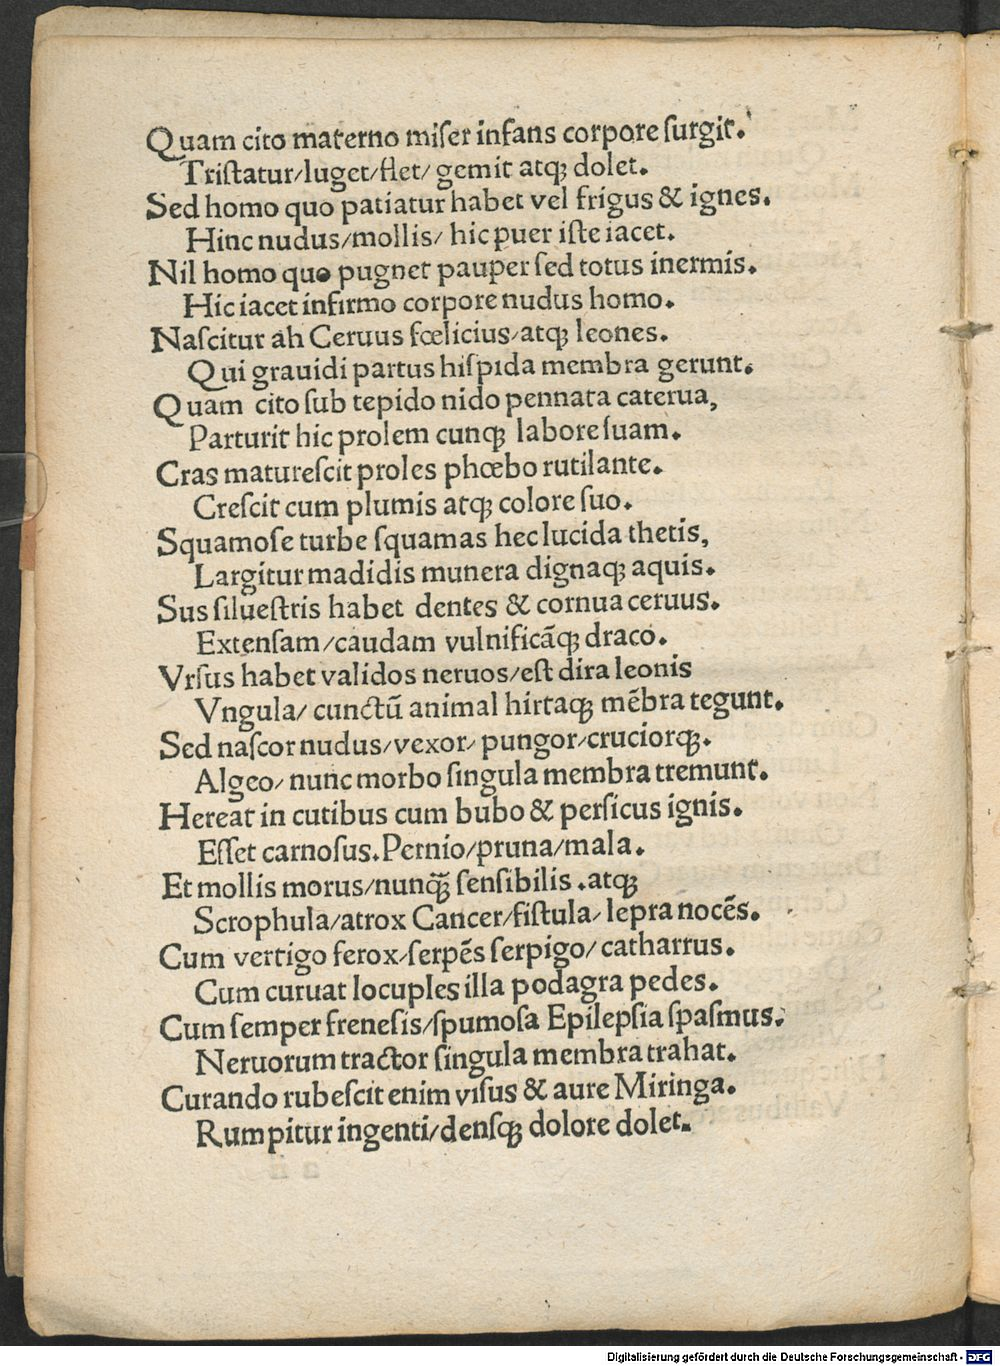 Quam cito materno miſer infans corpore ſurgit.
Triſtatur/luget/flet/ gemit atqꝫ dolet.
Sed homo quo patiatur habet vel frigus & ignes.
Hinc nudus/mollis/ hic puer iſte iacet.
Nil homo quo pugnet pauper ſed totus inermis.
Hic iacet infirmo corpore nudus homo.
Naſcitur ah Ceruus fœlicius/atqꝫ leones.
Qui grauidi partus hiſpida membra gerunt.
Quam cito ſub tepido nido pennata caterua,
Parturit hic prolem cunqꝫ labore ſuam.
Cras matureſcit proles phœbo rutilante.
Creſcit cum plumis atqꝫ colore ſuo.
Squamoſe turbe ſquamas hec lucida thetis,
Largitur madidis munera dignaqꝫ aquis.
Sus ſilueſtris habet dentes & cornua ceruus.
Extenſam/caudam vulnificāqꝫ draco.
Vrſus habet validos neruos/eſt dira leonis
Vngula/ cunctū animal hirtaqꝫ mēbra tegunt.
Sed naſcor nudus/vexor/ pungor/cruciorqꝫ.
Algeo/ nunc morbo ſingula membra tremunt.
Hereat in cutibus cum bubo & perſicus ignis.
Eſſet carnoſus.Pernio/pruna/mala.
Et mollis morus/nunqꝫ̄ ſenſibilis .atqꝫ
Scrophula/atrox Cancer/fiſtula/ lepra nocēs.
Cum vertigo ferox/ſerpēs ſerpigo/ catharrus.
Cum curuat locuples illa podagra pedes.
Cum ſemper freneſis/ſpumoſa Epilepſia ſpaſmus.
Neruorum tractor ſingula membra trahat.
Curando rubeſcit enim viſus & aure Miringa.
Rumpitur ingenti/denſqꝫ dolore dolet.
Digitalisierung gefördert durch die Deutsche Forschungsgemeinschaft - DFG